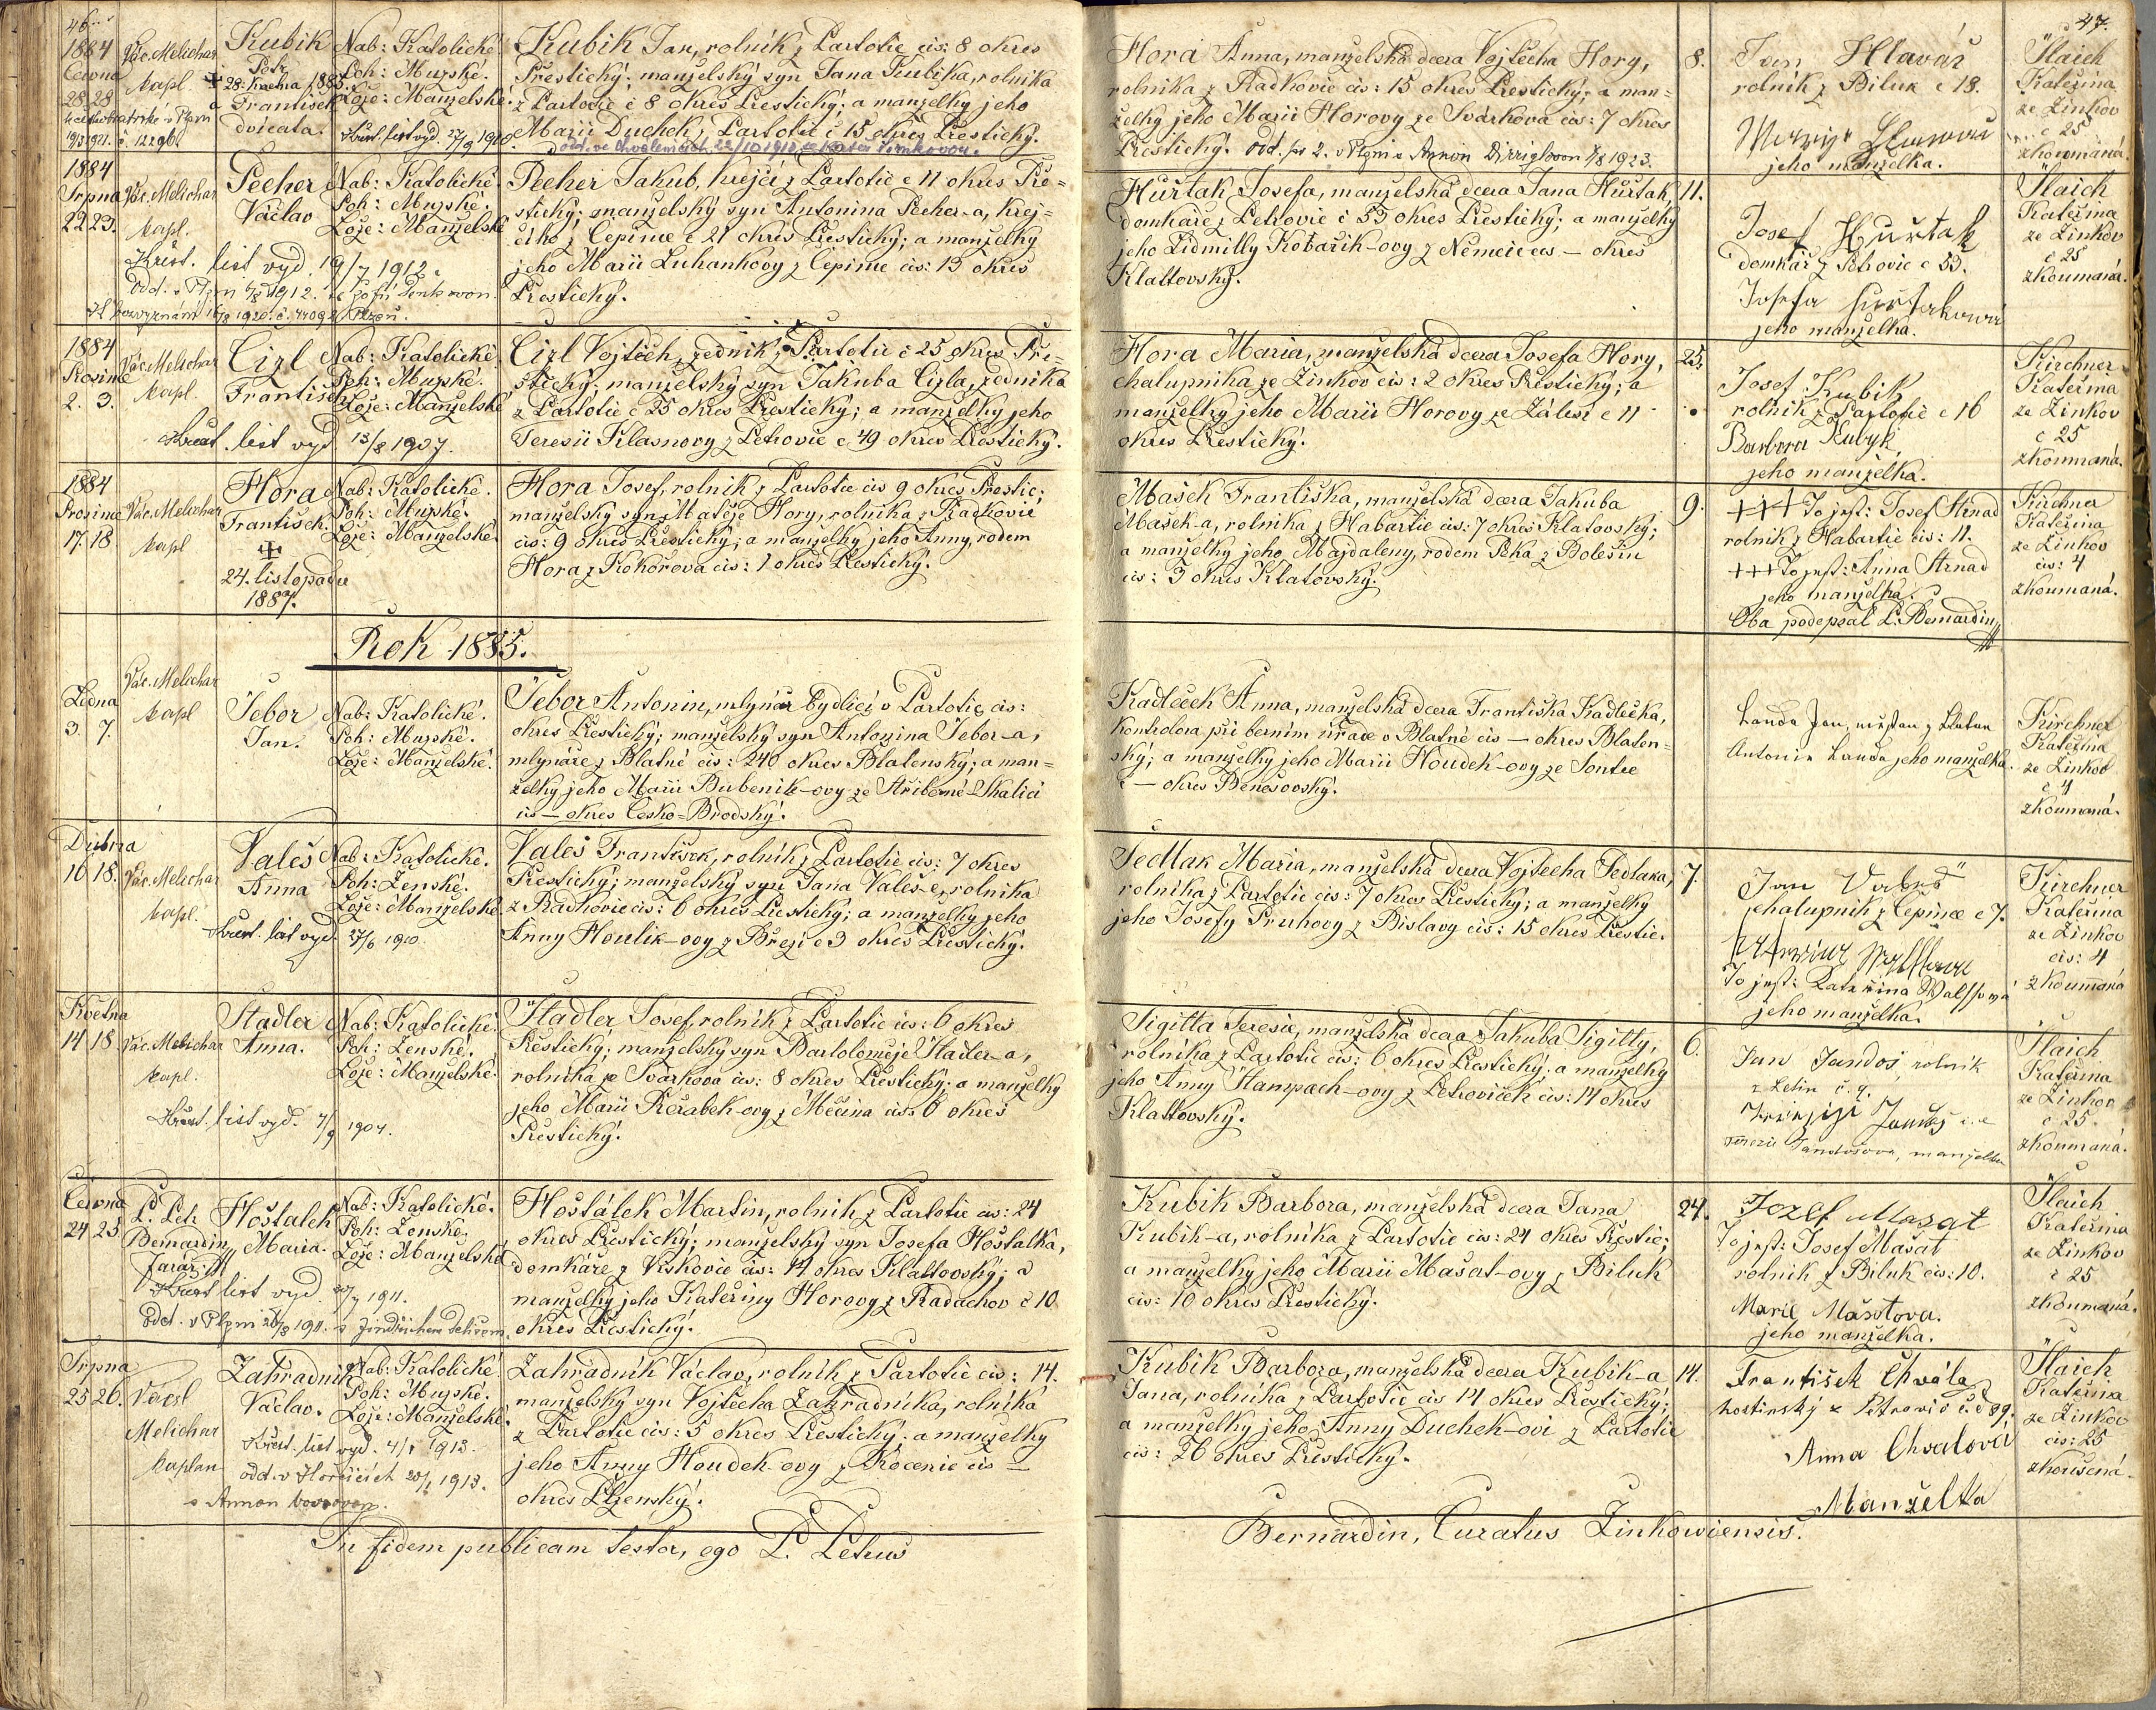 46.
1884
Června
28. 28
Vác. Melichar
kapl.
Kubik
Petr
+ 28. května 1885.
a
František
dvojčata.
Nab: Katolické.
Poh: Mužské.
Lože: Manželské.
Křest. list vyd. 27/9 1910.
Kubik Jan, rolník z Partotic čís: 8 okres
Přestický; manželský syn Jana Kubika, rolnika
z Partotic č 8 okres Přestický; a manželky jeho
Marii Duchek z Partotic č 15 okres Přestický.
1884
Srpna
22 23.
Vác. Melichar
kapl.
Pecher
Václav
Nab: Katolické.
Poh: Mužské.
Lože: Manželské
Křest. list vyd. 19/7 1912.
Pecher Jakub, krejčí z Partotic č 11 okres Pře=
stický; manželský syn Antonina Pecher-a, krej=
čího z Čepinec č 21 okres Přestický; a manželky
jeho Marii Luhankovy z Čepinec čís: 13 okres
Přestický.
1884
Prosince
2. 3.
Vác. Melichar
kapl.
Cizl
František
Nab: Katolické.
Poh: Mužské.
Lože: Manželské
Křest. list vyd. 13/8 1907.
Cizl Vojtěch, zednik z Partotic č 25 okres Pře=
stický; manželský syn Jakuba Cizla, zednika
z Partotic č 25 okres Přestický; a manželky jeho
Teresii Klasnovy z Petrovic č 49 okres Přestický.
1884
Prosince
17. 18.
Vác. Melichar
kapl
Hora
František.
+
24. listopadu
1887.
Nab: Katolické.
Poh: Mužské.
Lože: Manželské.
Hora Josef, rolnik z Partotic čís 9 okres Přestic;
manželský syn Matěje Hory, rolnika z Radkovic
čís: 9 okres Přestický; a manželky jeho Anny, rodem
Hora z Kokořova čís: 1 okres Přestický.
Rok 1885.
Ledna
3. 7.
Vác. Melichar
kapl
Šebor
Jan.
Nab: Katolické.
Poh: Mužské.
Lože: Manželské.
Šebor Antonin, mlynář bydlící v Partotic čís:
okres Přestický; manželský syn Antonina Šebor-a,
mlynáře z Blatné čís: 240 okres Blatenský; a man=
želky jeho Marii Bubenik-ovy ze Stříberné-Skalici
čís — okres Česko=Brodský.
Dubna
16 18.
Vác. Melichar
kapl.
Valeš
Anna
Nab: Katolické.
Poh: Ženské.
Lože: Manželské.
Křest. list vyd. 27/6 1910.
Valeš František, rolník z Partotic čís: 7 okres
Přestický; manželský syn Jana Valeš-e, rolnika
z Radkovic čís: 6 okres Přestický; a manželky jeho
Anny Houlik-ovy z Březi č 3 okres Přestický.
Května
14 18
Vác. Melichar
kapl.
Stadler
Anna.
Nab: Katolické.
Poh: Ženské.
Lože: Manželské.
Křest. list vyd. 7/9 1904.
Stadler Josef, rolník z Partotic čís: 6 okres
Přestický; manželský syn Bartoloměje Stadler-a,
rolnika ze Svárkova čís: 8 okres Přestický; a manželky
jeho Marii Řeřabek-ovy z Měčina čís: 6 okres
Přestický.
Června
24 25
P. Petr
Bernardin
farář.
Hošťalek
Maria.
Nab: Katolické.
Poh: Ženské.
Lože: Manželské
Křest list vyd. 20/7 1911.
Hošťálek Martin, rolnik z Partotic čís: 24
okres Přestický; manželský syn Josefa Hošťalka,
domkáře z Vískovic čís: 14 okres Klattovský; a
manželky jeho Kateřiny Horovy z Radachov č 10
okres Přestický.
Srpna
25 26.
Václ
Melichar
kaplan
Zahradnik
Václav.
Nab: Katolické.
Poh: Mužské.
Lože: Manželské.
Křest. list vyd. 4/1 1913.
Zahradník Václav, rolník z Partotic čís: 14.
manželský syn Vojtěcha Zahradníka, rolníka
z Partotic čís: 5 okres Přestický; a manželky
jeho Anny Houdek-ovy z Kocenic čís —
okres Plzenský.
In fidem publicam testor, ego P. Petrus
47.
Hora Anna, manželská dcera Vojtěcha Hory,
rolnika z Radkovic čís: 15 okres Přestický; a man=
želky jeho Marii Horovy ze Svárkova čís: 7 okres
Přestický.
8.
Jan Hlaváč
rolník z Biluk č 18.
jeho manželka.
Šlaich
Kateřina
ze Žinkov
č 25
zkoumaná.
Huřťak Josefa, manželská dcera Jana Huřťak,
domkáře z Petrovic č 53 okres Přestický; a manželky
jeho Lidmilly Kobařik-ovy z Němčic čís — okres
Klattovský.
11.
Josef Huřťak
domkář z Petrovic č 53.
Josefa Huřťakowa
jeho manželka.
Šlaich
Kateřina
ze Žinkov
č 25
zkoumaná.
Hora Maria, manželská dcera Josefa Hory,
chalupnika ze Žinkov čís: 2 okres Přestický; a
manželky jeho Marii Horovy ze Zálesi č 11
okres Přestický.
25.
Josef Kubik,
rolník z Partotic č 16
Barbora Kubyk,
jeho manželka.
Kirchner
Kateřina
ze Žinkov
č 25
zkoumaná.
Mašek Františka, manželská dcera Jakuba
Mašek-a, rolnika z Habartic čís: 7 okres Klatovský;
a manželky jeho Majdaleny, rodem Peka z Bolešin
čís: 3 okres Klatovský.
9.
+++ To jest: Josef Strnad
rolník z Habartic čís: 11.
+++ To jest: Anna Strnad
jeho manželka.
Oba podepsal P. Bernardin
Kirchner
Kateřina
ze Žinkov
čís: 4
zkoumaná.
Kadleček Anna, manželská dcera Františka Kadlečka,
kontrolora při berním úřadě v Blatné čís — okres Blaten=
ský; a manželky jeho Marii Houdek-ovy ze Sontic
č — okres Benešovský.
Landa Jan, měšťan z Blatna
Antonie Landa jeho manželka.
Kirchner
Kateřina
ze Žinkov
č 4
zkoumaná.
Sedlak Maria, manželská dcera Vojtěcha Sedlaka,
rolnika z Partotic čís: 7 okres Přestický; a manželky
jeho Josefy Pruhovy z Bislavy čís: 15 okres Přestic.
7.
Jan Valeš
chalupnik z Čepinec č 7.
To jest: Kateřina Walssowa
jeho manželka.
Kirchner
Kateřina
ze Žinkov
čís: 4
zkoumaná
Sigitta Teresie, manželská dcera Jakuba Sigitty,
rolníka z Partotic čís: 6 okres Přestický; a manželky
jeho Anny Hampach-ovy z Petroviček čís: 14 okres
Klattovský.
6.
Jan Jandoš, rolník
z Letin č. 9.
Terezie Jandošova, manželka
Šlaich
Kateřina
ze Žinkov
č 25.
zkoumaná.
Kubik Barbora, manželská dcera Jana
Kubik-a, rolníka z Partotic čís: 24 okres Přestic;
a manželky jeho Marii Mašat-ovy z Biluk
čís: 10 okres Přestický.
24.
Jozef Masat
To jest: Josef Mašat
rolnik z Biluk čís: 10.
Marie Mašatova.
jeho manželka.
Šlaich
Kateřina
ze Žinkov
č 25
zkoumaná.
Kubik Barbora, manželská dcera Kubik-a
Jana, rolnika z Partotic čís 14 okres Přestický;
a manželky jeho Anny Duchek-ovi z Partotic
čís: 26 okres Přestický.
14.
František Chvála
hostinský z Petrowic č. 89.
Anna Chvalová
Manželka
Šlaich
Kateřina
ze Žinkov
čís: 25
zkoušená.
Bernardin, Curatus Žinkowiensis.